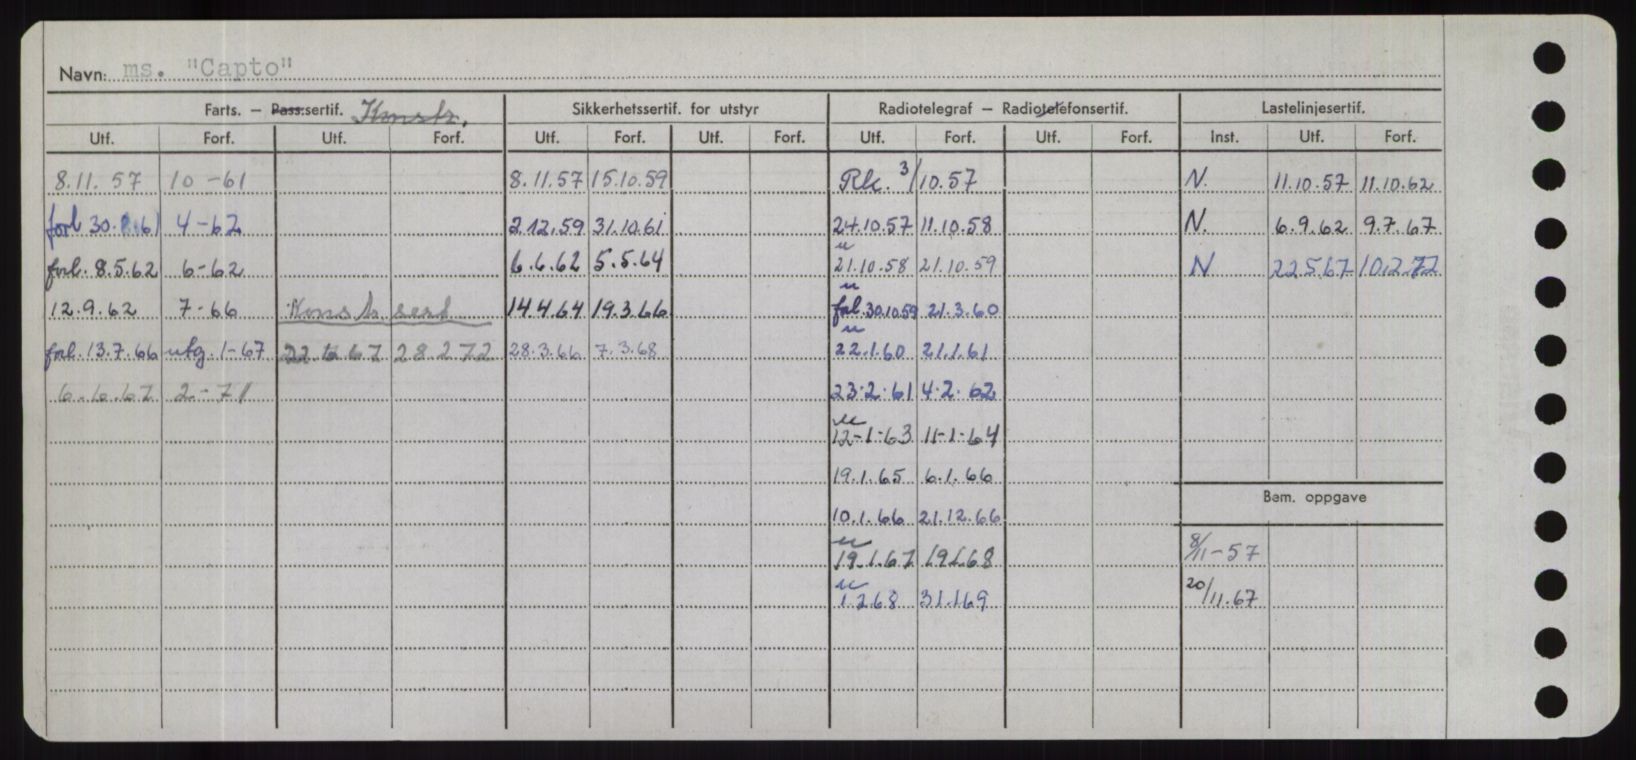 Navn: ms. "Capto"
Farts. — Pass.sertif. Konstr. Sikkerhetssertif. for utstyr Radiotelegraf — Radiotelefonsertif. Lastelinjesertif.
Utf. Forf. Utf. Forf. Utf. Forf. Utf. Forf. Utf. Forf. Utf. Forf. Inst. Utf. Forf.
8.11.57 10-61 8.11.57 15.10.59 Rk. 3/10.57 N. 11.10.57 11.10.62
forl 30. .61 4-62 2.12.59 31.10.61 24.10.57 11.10.58 N. 6.9.62 9.7.67
forl. 8.5.62 6-62 6.6.62 5.5.64 " 21.10.58 21.10.59 N 22.5.67 10.2.72
12.9.62 7-66 Konstr. sert 14.4.64 19.3.66 " forl. 30.10.59 21.3.60
forl. 13.7.66 utg. 1-67 22.6.67 28.2.72 28.3.66 7.3.68 " 22.1.60 21.1.61
6.6.67 2-71 23.2.61 4.2.62
" 12-1-63 11-1-64
19.1.65 6.1.66
Bem. oppgave
10.1.66 21.12.66
" 19.1.67 19.1.68 8/11-57
" 1.2.68 31.1.69 20/11.67